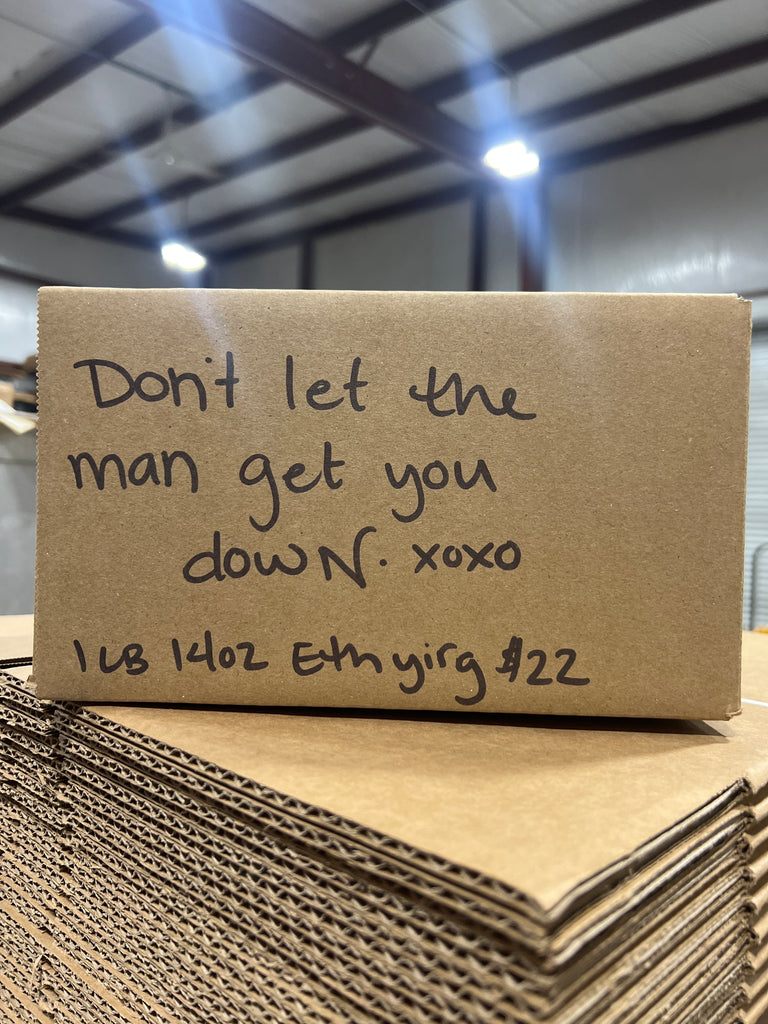 Don't let the
man get you
down. xoxo
1 LB 14oz Eth yirg $22